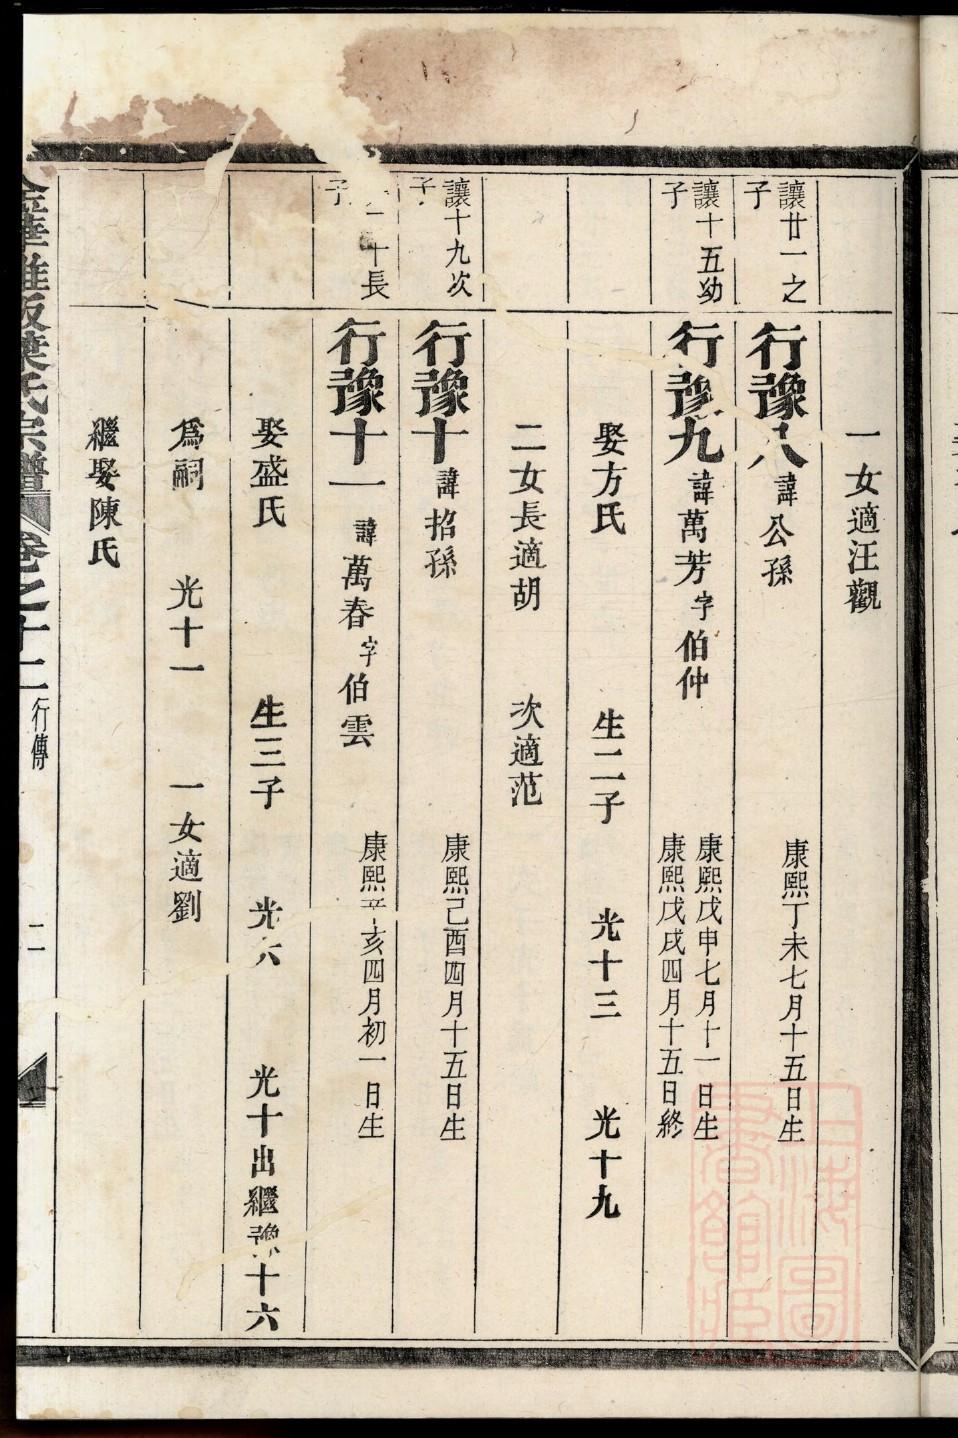 一女適汪觀
讓廿一之子
行豫八 諱公孫 康熙丁未七月十五日生
讓十五幼子
行豫九 諱萬芳字伯仲 康熙戊申七月十一日生
康熙戊戌四月十五日終
娶方氏 生二子 光十三 光十九
二女長適胡 次適范
讓十九次子
行豫十 諱招孫 康熙己酉四月十五日生
十長子
行豫十一 諱萬春字伯雲 康熙辛亥四月初一日生
娶盛氏 生三子 光六 光十出繼豫十六
為嗣 光十一 一女適劉
繼娶陳氏
葉氏宗譜 卷之十二 行傳 二
上海圖書館藏